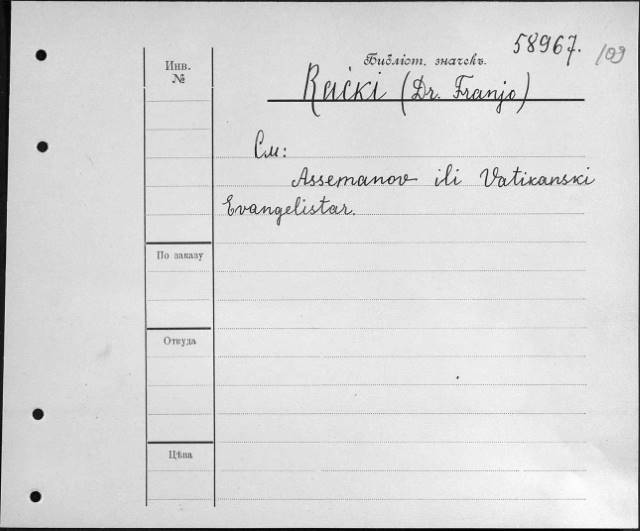 58967. 109
Библіот. значекъ.
Инв.
№
Rački (Dr. Franjo)
См:
Assemanov ili Vatikanski
Evangelistar.
По заказу
Откуда
Цѣна